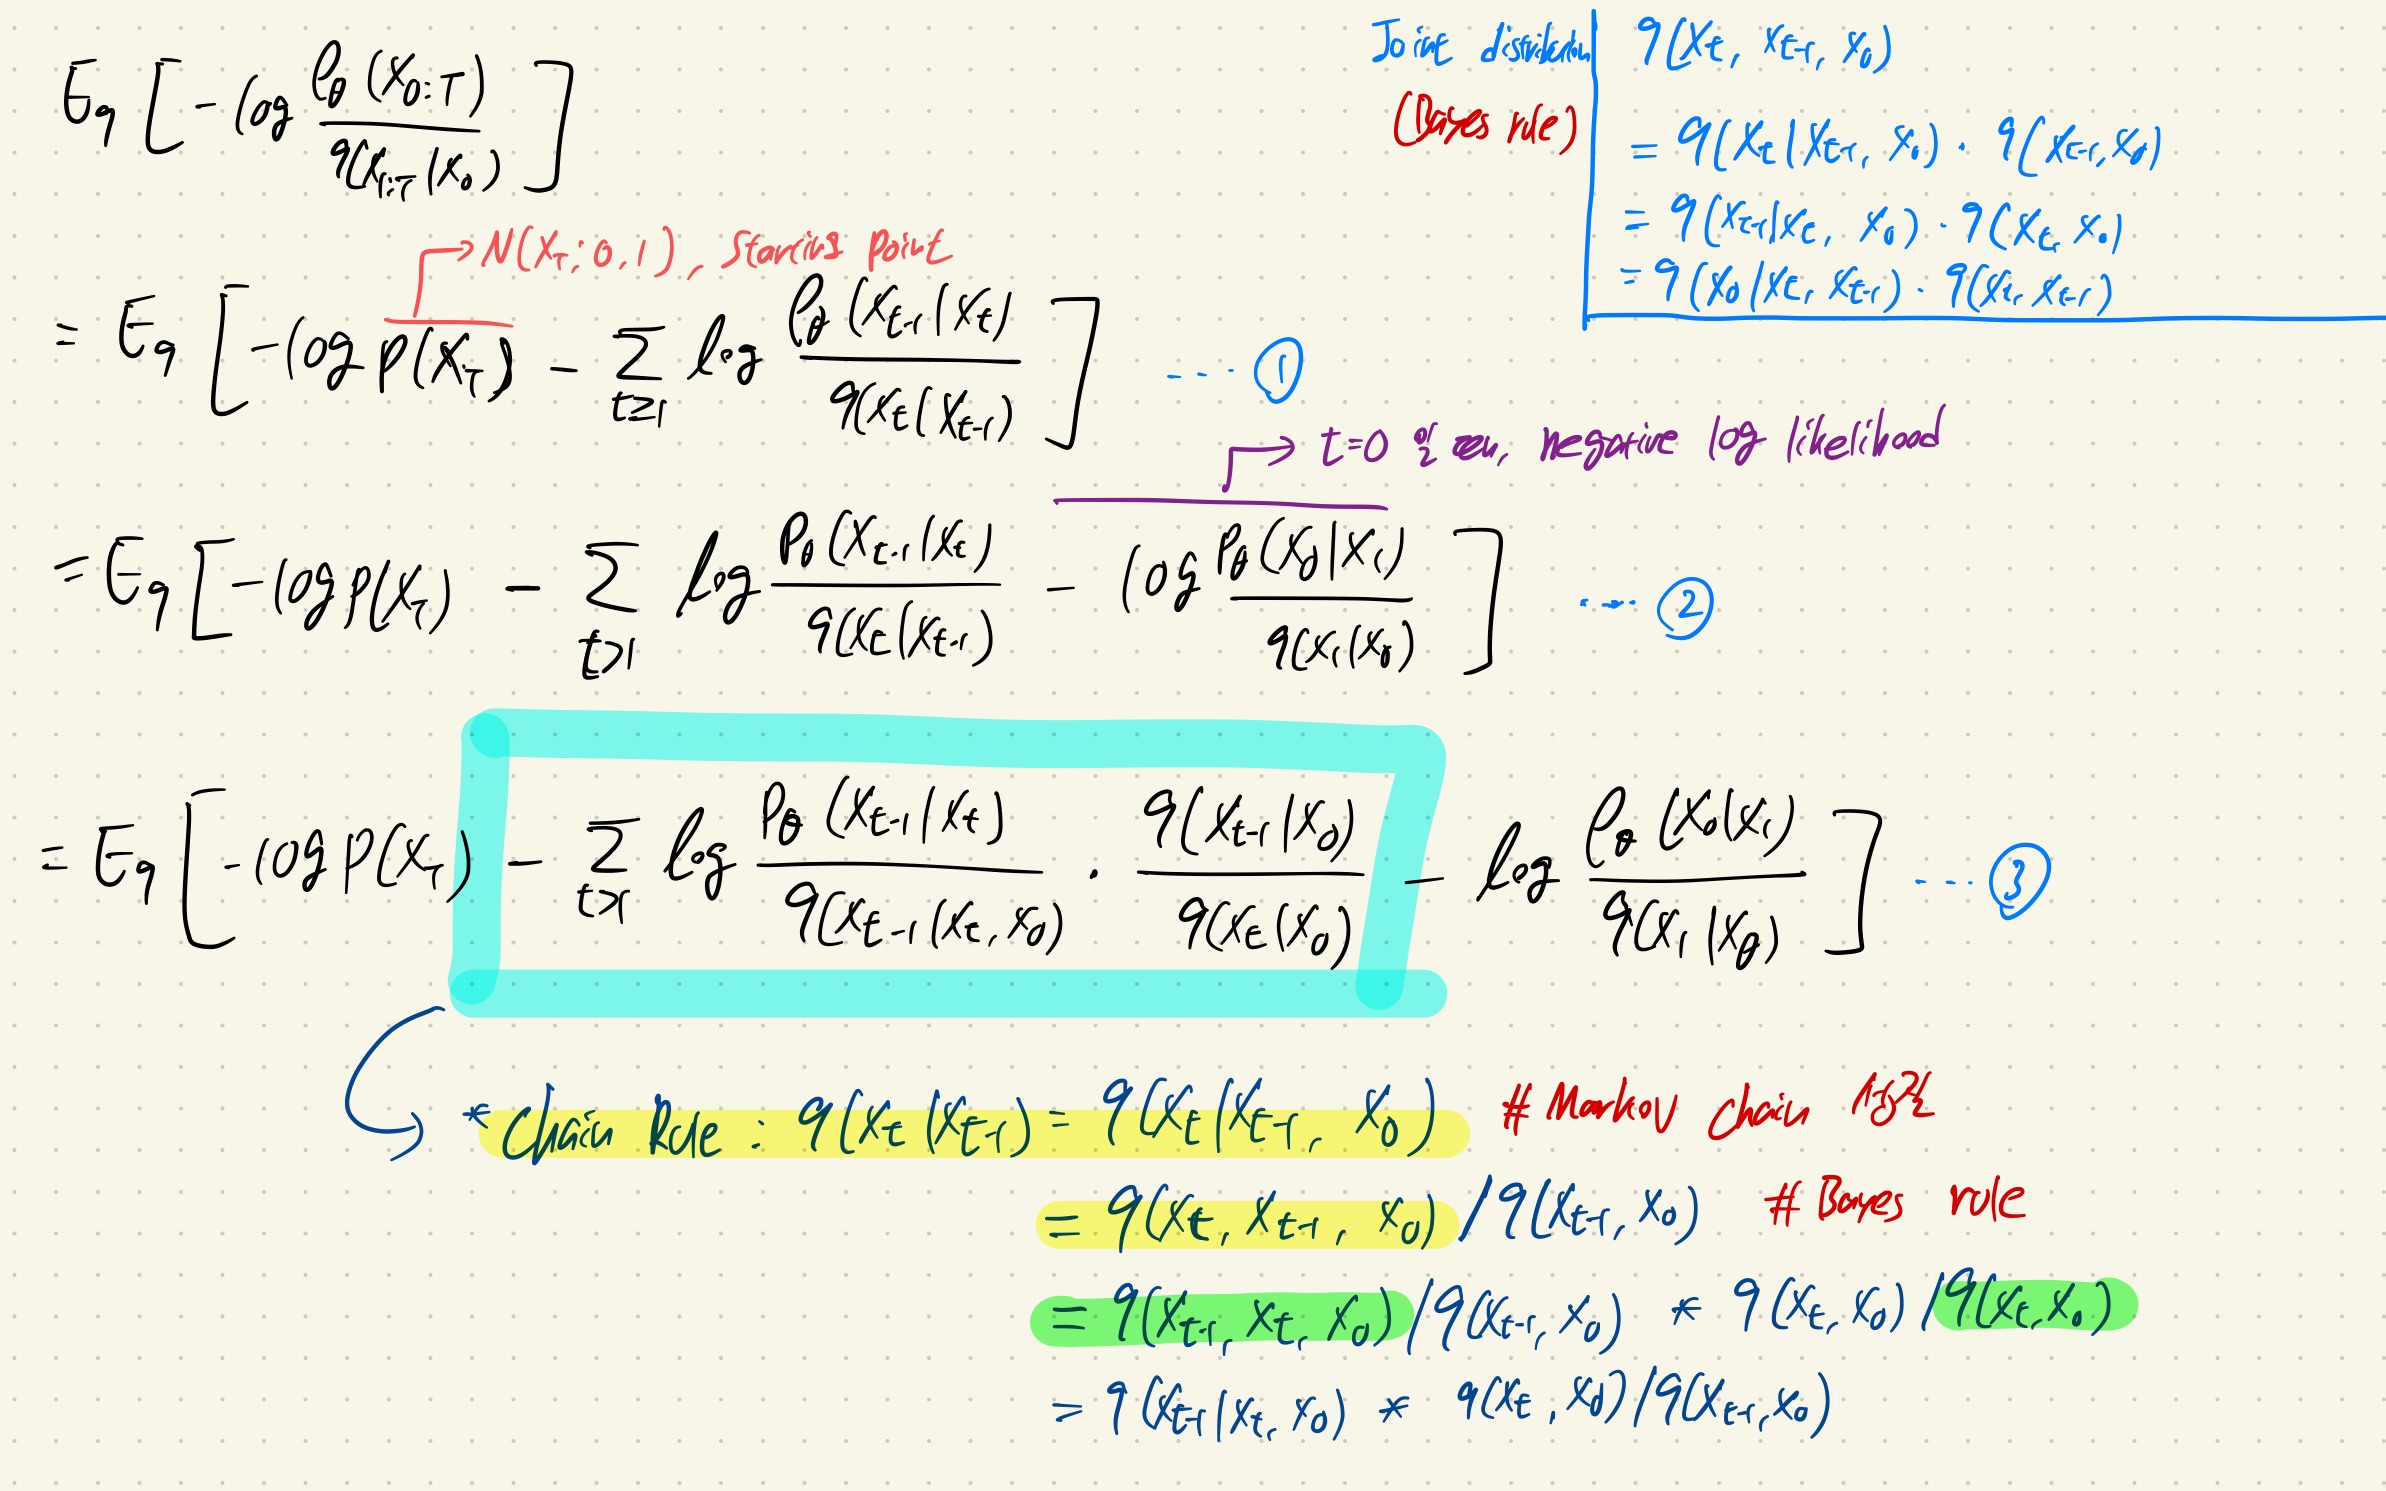 E_q [ -log P_θ(X_{0:T}) / q(X_{1:T}|X_0) ]
Joint distribution
(Bayes rule)
q(X_t, X_{t-1}, X_0)
= q(X_t|X_{t-1}, X_0) · q(X_{t-1}, X_0)
= q(X_{t-1}|X_t, X_0) · q(X_t, X_0)
= q(X_0|X_t, X_{t-1}) · q(X_t, X_{t-1})
→ N(X_T; 0, 1), Starting point
= E_q [ -log P(X_T) - Σ_{t≥1} log P_θ(X_{t-1}|X_t) / q(X_t|X_{t-1}) ] ---- ①
→ t=0 negative log likelihood
= E_q [ -log P(X_T) - Σ_{t>1} log P_θ(X_{t-1}|X_t) / q(X_t|X_{t-1}) - log P_θ(X_0|X_1) / q(X_1|X_0) ] ---- ②
= E_q [ -log P(X_T) - Σ_{t>1} log P_θ(X_{t-1}|X_t) / q(X_{t-1}|X_t, X_0) · q(X_{t-1}|X_0) / q(X_t|X_0) - log P_θ(X_0|X_1) / q(X_1|X_0) ] ---- ③
* Chain Rule : q(X_t|X_{t-1}) = q(X_t|X_{t-1}, X_0) # Markov chain
= q(X_t, X_{t-1}, X_0) / q(X_{t-1}, X_0) # Bayes rule
= q(X_{t-1}, X_t, X_0) / q(X_{t-1}, X_0) * q(X_t, X_0) / q(X_t, X_0)
= q(X_{t-1}|X_t, X_0) * q(X_t, X_0) / q(X_{t-1}, X_0)